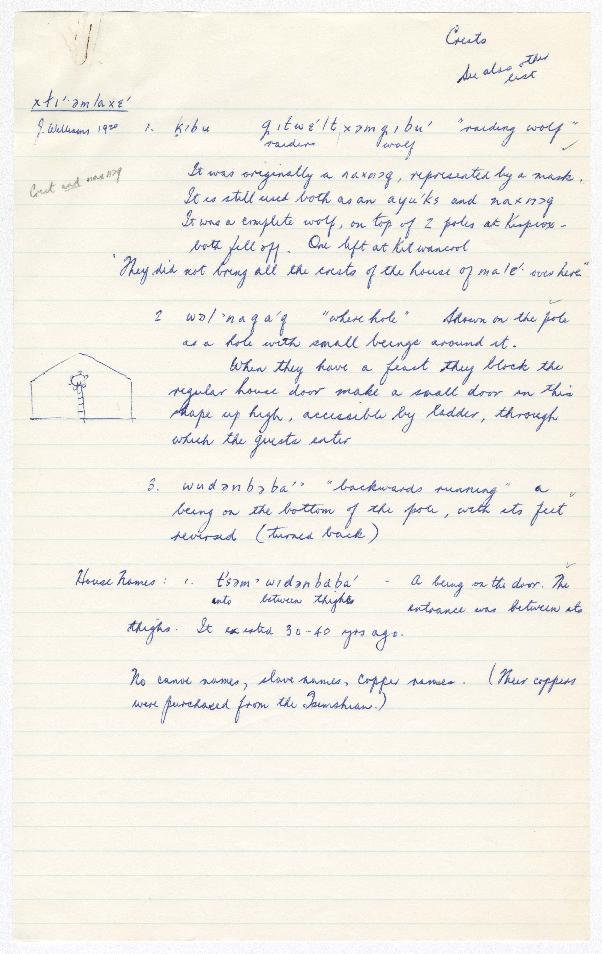 Crests
See also other
list
xłi'·əmlaxɛ'
J. Williams 1920 1. ḳibu gitwɛ'lt xəmgibu' "raiding wolf"
raiders wolf
It was originally a naxnɔg, represented by a mask.
Crest and naxnɔg
It is still used both as an ayu'ks and naxnɔg
It was a complete wolf, on top of 2 poles at Kispiox –
both fell off. One left at Kitwancool
"They did not bring all the crests of the house of malɛ'· over here"
2 wəl·naga'g "where hole" Shown on the pole
as a hole with small beings around it.
When they have a feast they block the
regular house door make a small door in this
shape up high, accessible by ladder, through
which the guests enter
3. wudənbəba'' "backwards running" a
being on the bottom of the pole, with its feet
reversed (turned back)
House Names: 1. t'səm·widənbaba' - A being on the door. The
into between thighs entrance was between its
thighs. It existed 30-40 yrs ago.
No canoe names, slave names, copper names. (Their coppers
were purchased from the Tsimshian.)